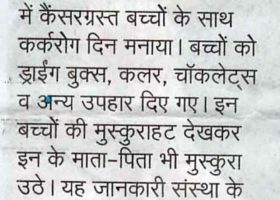 में कैंसरग्रस्त बच्चों के साथ
कर्करोग दिन मनाया। बच्चों को
ड्राईंग बुक्स, कलर, चॉकलेट्स
व अन्य उपहार दिए गए। इन
बच्चों की मुस्कुराहट देखकर
इन के माता-पिता भी मुस्कुरा
उठे। यह जानकारी संस्था के